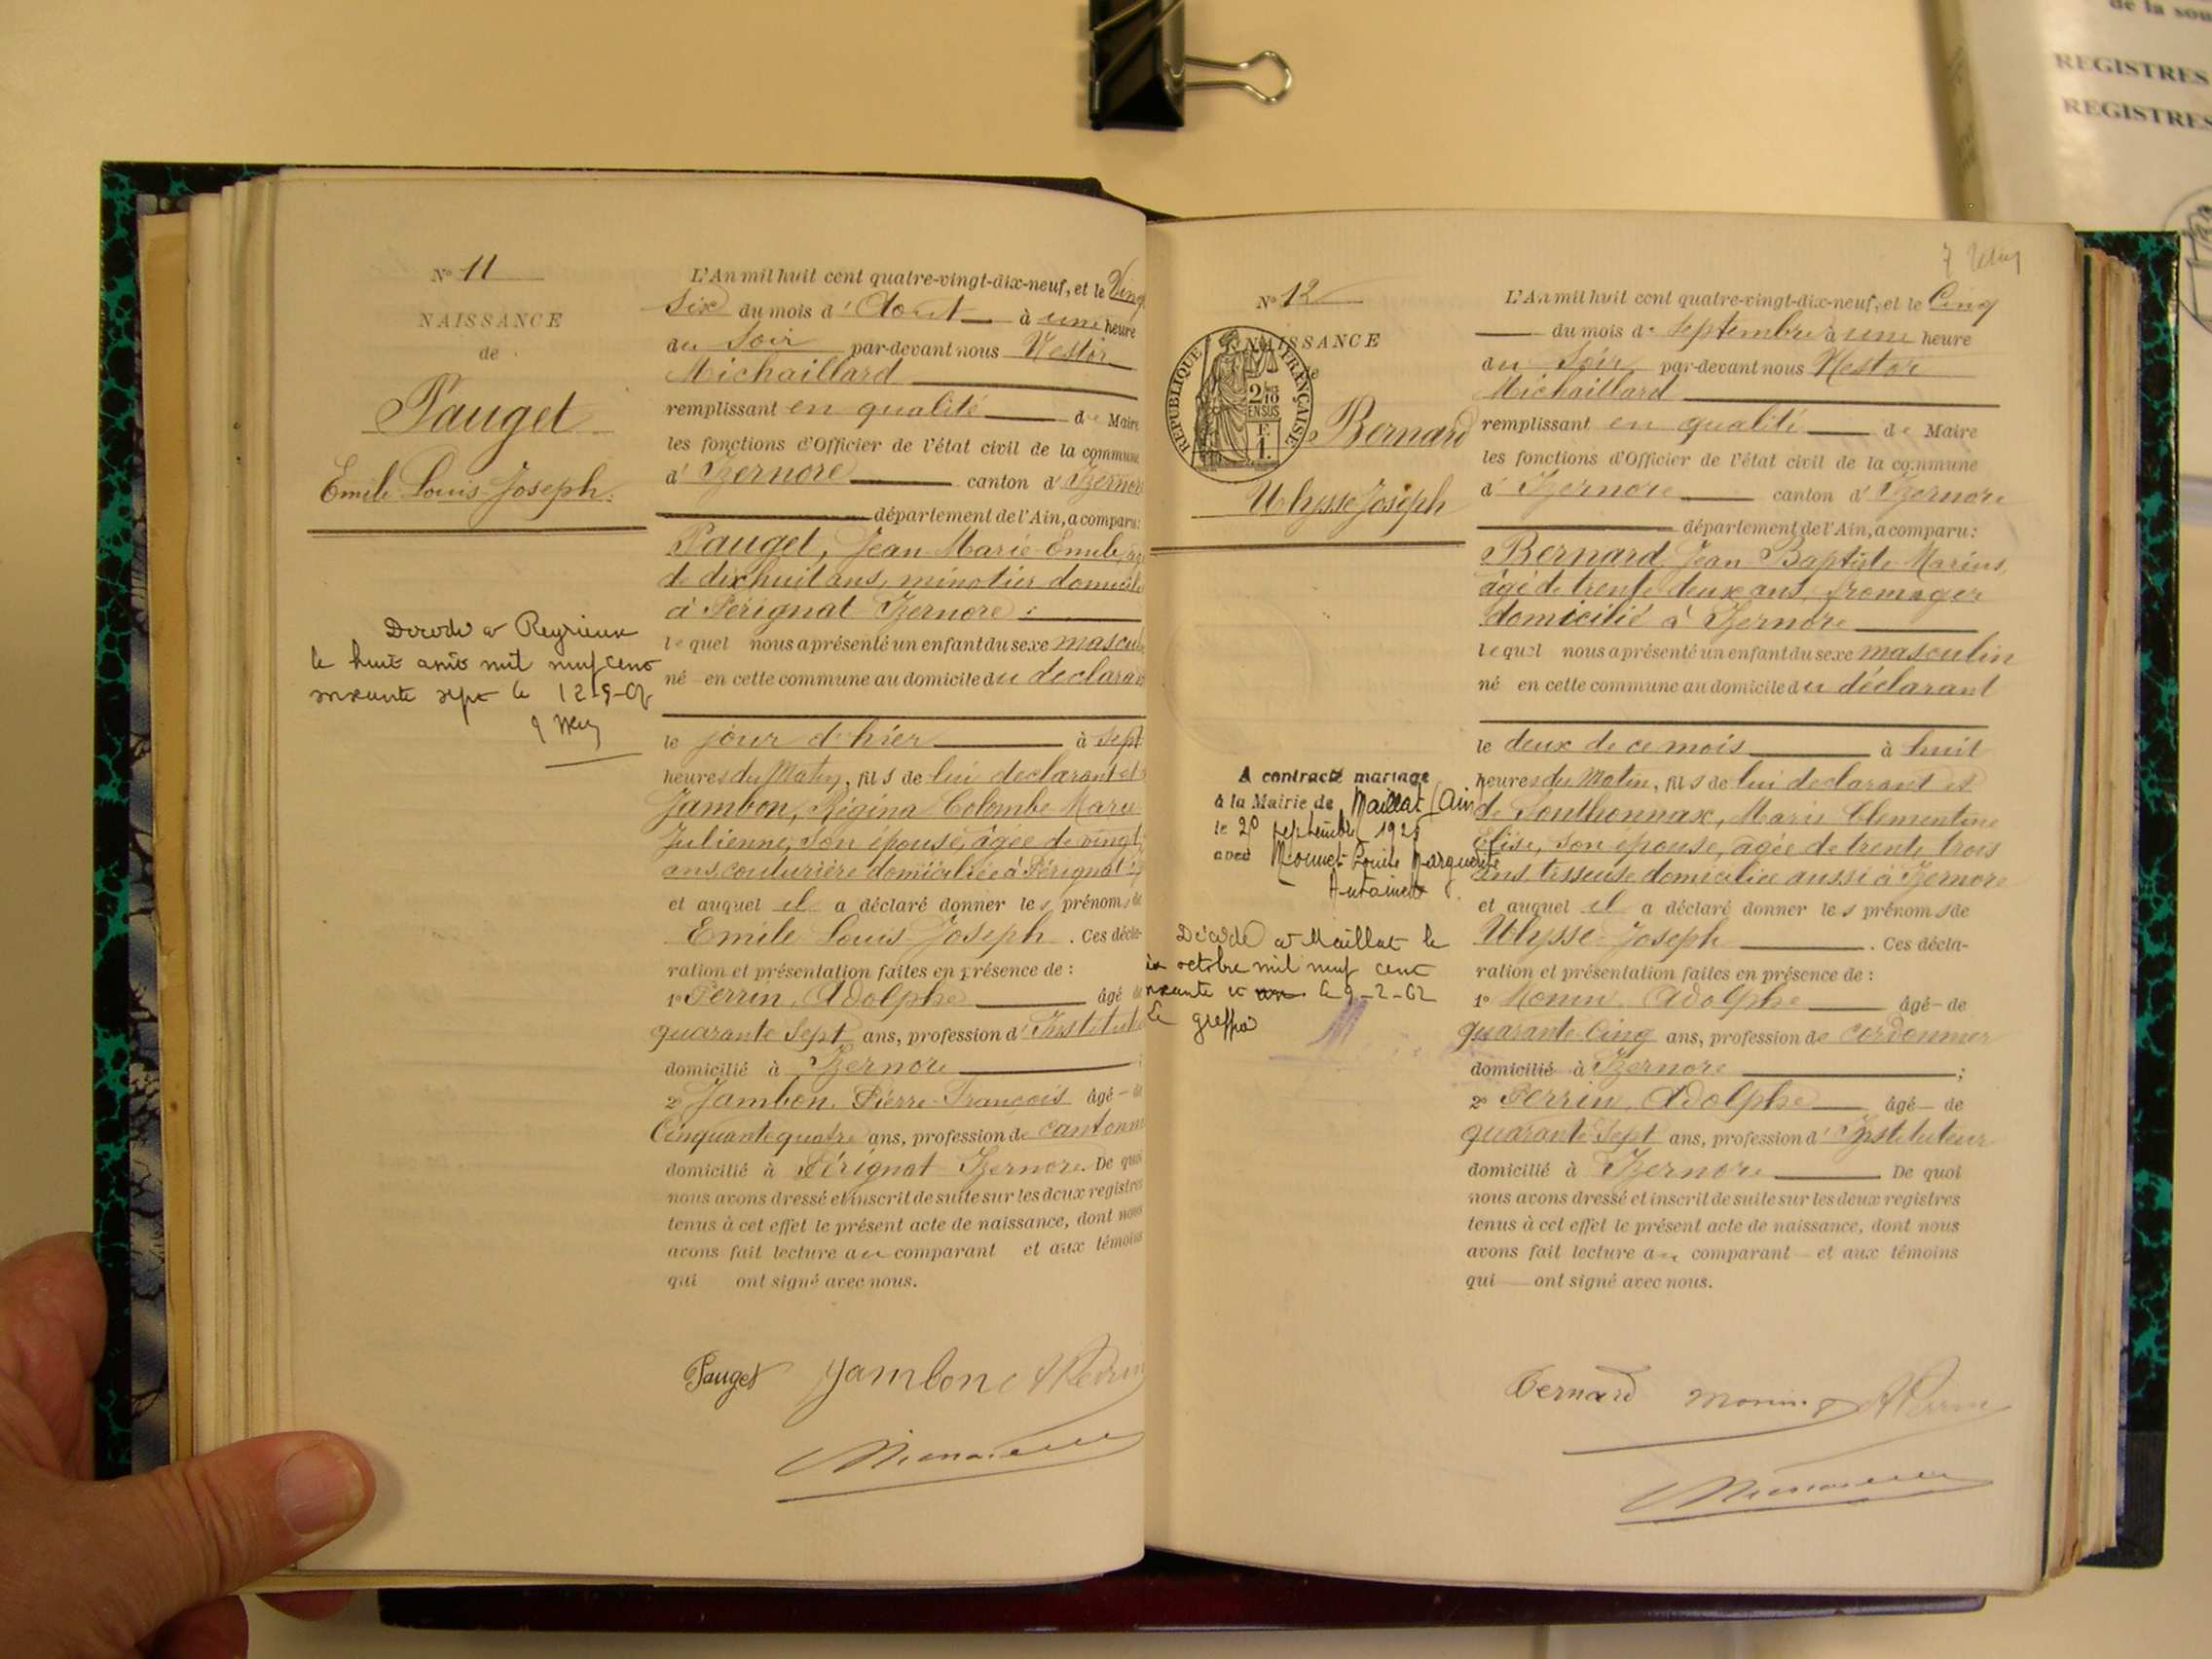 de la sou
REGISTRES
REGISTRES
N° 11
NAISSANCE
de
Pauget
Emile Louis Joseph.
Décédé à Reyrieux
le huit août mil neuf cent
soixante sept le 12-9-67
L'An mil huit cent quatre-vingt-dix-neuf, et le Vingt
six du mois d'Aout à une heure
du Soir par-devant nous Nestor
Michaillard
remplissant en qualité de Maire
les fonctions d'Officier de l'état civil de la commune
d'Izernore canton d'Izernore
département de l'Ain, a comparu:
Pauget, Jean Marie Emile,
de dix huit ans, minotier domicilié
à Pérignat Izernore:
lequel nous a présenté un enfant du sexe mascu
né en cette commune au domicile du déclara
le jour d'hier à sept
heures du Matin, fils de lui déclarant et
Jambon, Régina Colombe Marie
Julienne, son épouse, âgée de vingt
ans, couturière domiciliée à Pérignat
et auquel il a déclaré donner les prénoms de
Emile Louis Joseph. Ces décla-
ration et présentation faites en présence de:
1° Perrin, Adolphe âgé de
quarante sept ans, profession d'Institut
domicilié à Izernore;
2° Jambon, Pierre-François âgé de
Cinquante quatre ans, profession de cantonn
domicilié à Pérignat Izernore. De quoi
nous avons dressé et inscrit de suite sur les deux registres
tenus à cet effet le présent acte de naissance, dont nous
avons fait lecture au comparant et aux témoins
qui ont signé avec nous.
Pauget Jambon A Perrin
7
N° 12
NAISSANCE
de
REPUBLIQUE FRANÇAISE
2/10
EN SUS
F.
1.
Bernard
Ulysse Joseph
A contracté mariage
à la Mairie de Maillat (Ain
le 20 septembre 192
avec Marguerite
Décédé à Maillat le
octobre mil neuf cent
le 9-2-62
Le greffier
L'An mil huit cent quatre-vingt-dix-neuf, et le Cinq
du mois de Septembre à une heure
du Soir par-devant nous Nestor
Michaillard
remplissant en qualité de Maire
les fonctions d'Officier de l'état civil de la commune
d'Izernore canton d'Izernore
département de l'Ain, a comparu:
Bernard, Jean Baptiste Marius,
âgé de trente deux ans, fromager
domicilié à Izernore
lequel nous a présenté un enfant du sexe masculin
né en cette commune au domicile du déclarant
le deux de ce mois à huit
heures du Matin, fils de lui déclarant et
de Southonnax, Marie Clementine
Elise, son épouse, âgée de trente trois
ans, tisseuse domiciliée aussi à Izernore
et auquel il a déclaré donner les prénoms de
Ulysse Joseph. Ces décla-
ration et présentation faites en présence de:
1° Monin, Adolphe âgé de
quarante Cinq ans, profession de cordonnier
domicilié à Izernore;
2° Perrin, Adolphe âgé de
quarante Sept ans, profession d'Instituteur
domicilié à Izernore De quoi
nous avons dressé et inscrit de suite sur les deux registres
tenus à cet effet le présent acte de naissance, dont nous
avons fait lecture au comparant et aux témoins
qui ont signé avec nous.
Bernard Monin A Perrin